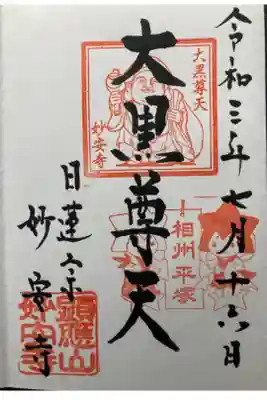 令和三年七月十六日
大黒尊天
妙安寺
相州平塚
大黒尊天
日蓮宗
妙安寺
妙安寺